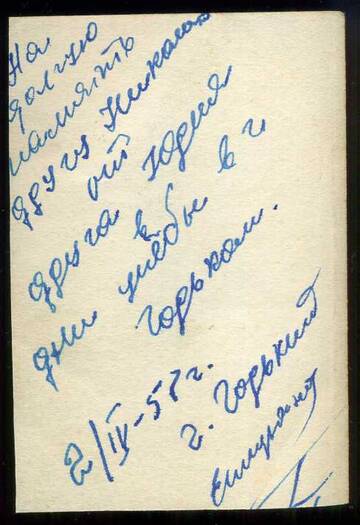 На
долгую
память
другу Николаю
от
друга Юрия
в
дни учёбы в г
Горьком.
2/IV-57г.
г. Горький